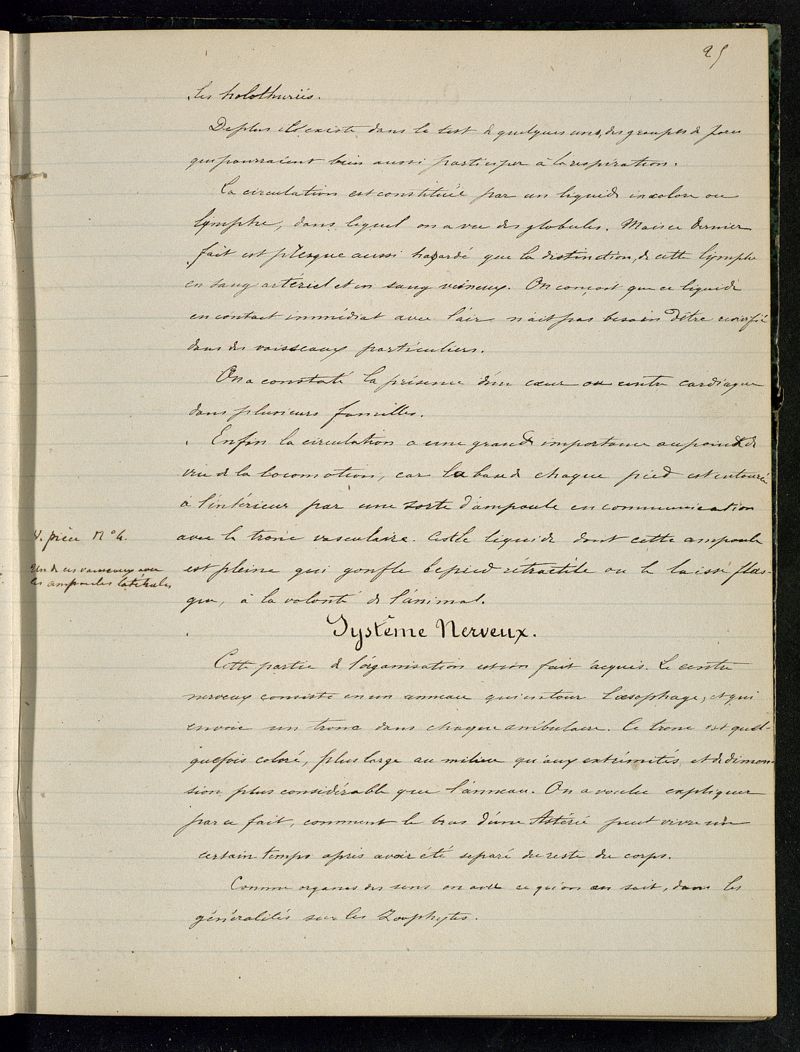 25
les holothuries.
De plus il existe dans le test de quelques uns, des groupes de pores
qui pourraient bien aussi participer à la respiration.
La circulation est constituée par un liquide incolore ou
lymphe, dans lequel on a vu des globules. Mais ce dernier
fait est presque aussi hasardé que la distinction, de cette lymphe
en sang artériel et en sang veineux. On conçoit que ce liquide
en contact immédiat avec l'air n'ait pas besoin d'être
dans des vaisseaux particuliers.
On a constaté la présence d'un cœur ou centre cardiaque
dans plusieurs familles.
Enfin la circulation a une grande importance au point de
vue de la locomotion, car la base de chaque pied est entourée
à l'intérieur par une sorte d'ampoule en communication
avec le tronc vasculaire. C'est le liquide dont cette ampoule
est pleine qui gonfle le pied rétractile ou le laisse flas-
que, à la volonté de l'animal.
V. pièce N° 4.
Un de ces vaisseaux avec
les ampoules latérales
Système Nerveux.
Cette partie de l'organisation est un fait acquis. Le centre
nerveux consiste en un anneau qui entoure l'œsophage, et qui
envoie un tronc dans chaque ambulaire. Ce tronc est quel-
quefois coloré, plus large au milieu qu'aux extrémités, et de dimen-
sion plus considérable que l'anneau. On a voulu expliquer
par ce fait, comment le bras d'une Astérie peut vivre un
certain temps après avoir été separé du reste du corps.
Comme organes des sens on a vu ce qu'on en sait, dans les
généralités sur les Zoophytes.